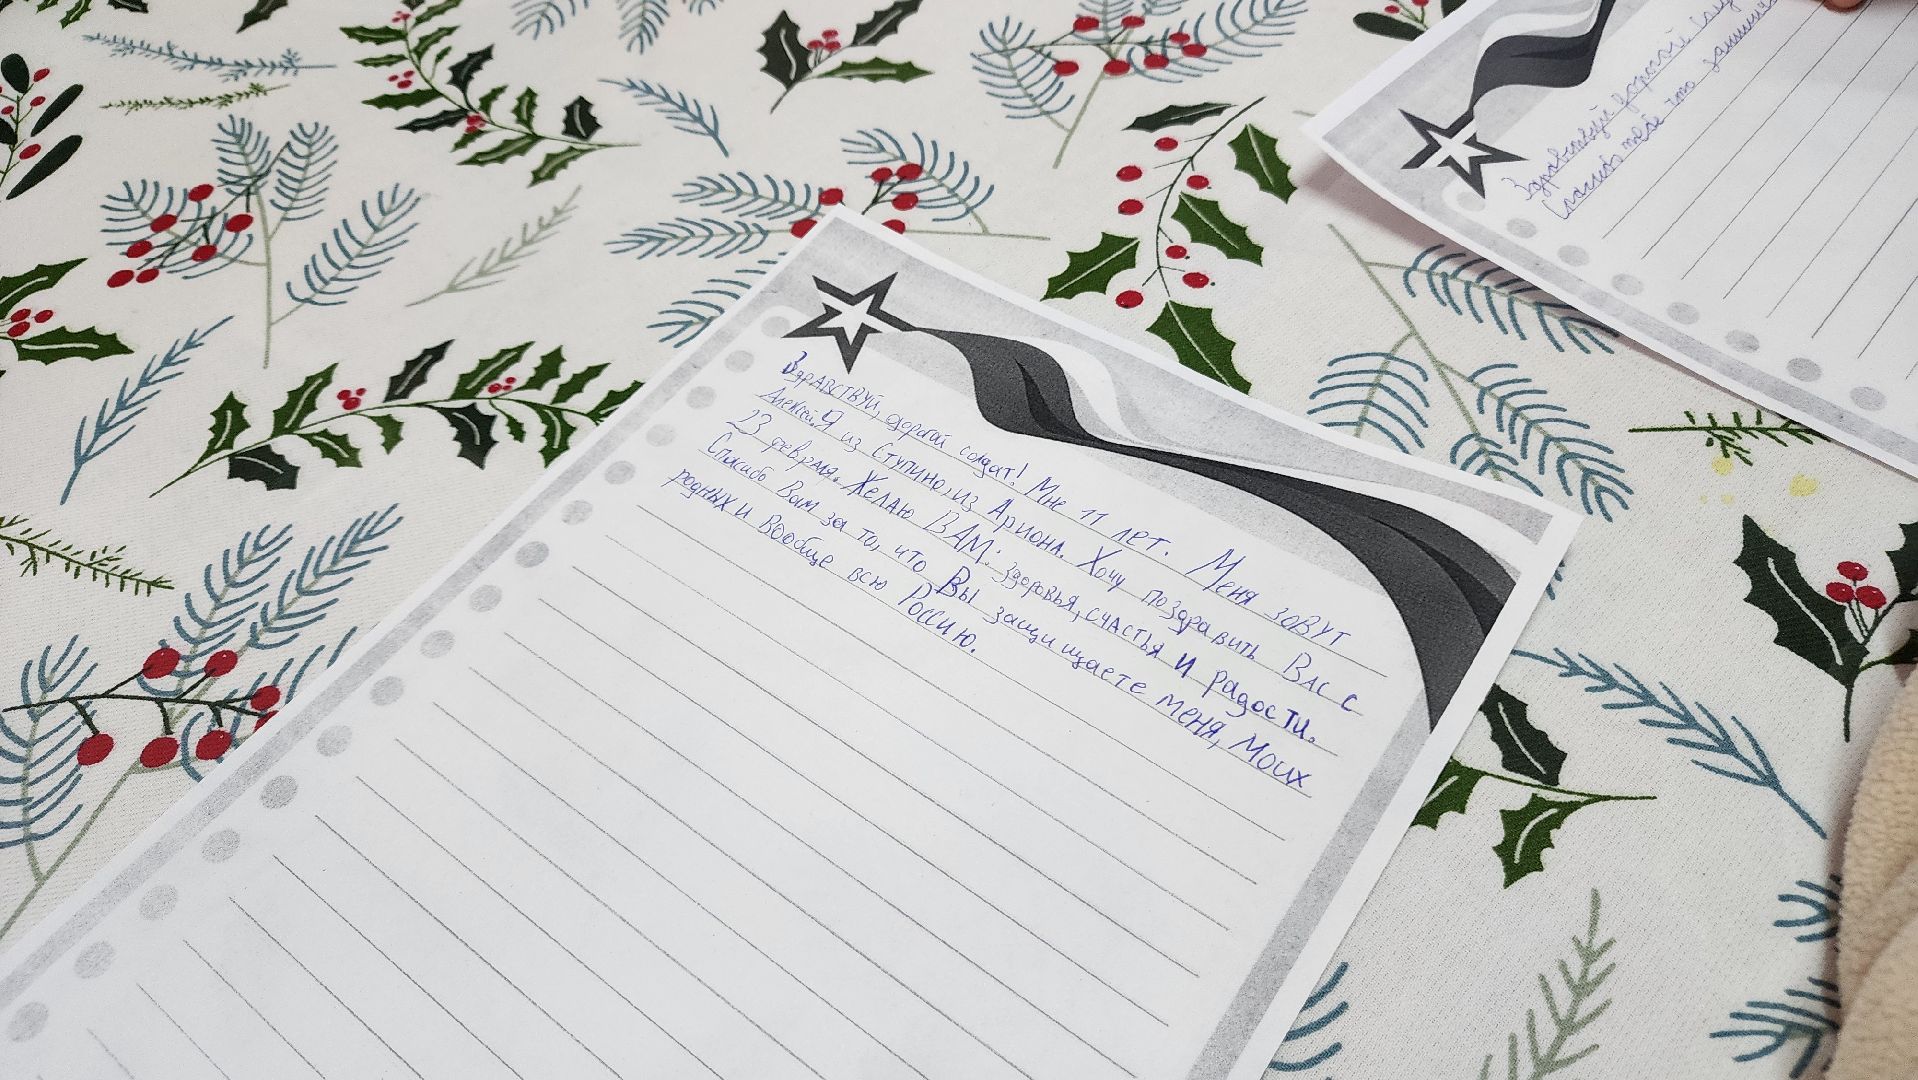 Здравствуй, дорогой солдат! Мне 11 лет. Меня зовут
Алексей. Я из Ступино, из Ариона. Хочу поздравить Вас с
23 февраля. Желаю ВАМ: здоровья, счастья и радости.
Спасибо Вам за то, что Вы защищаете меня, моих
родных и вообще всю Россию.
Здравствуй дорогой
Спасибо тебе что